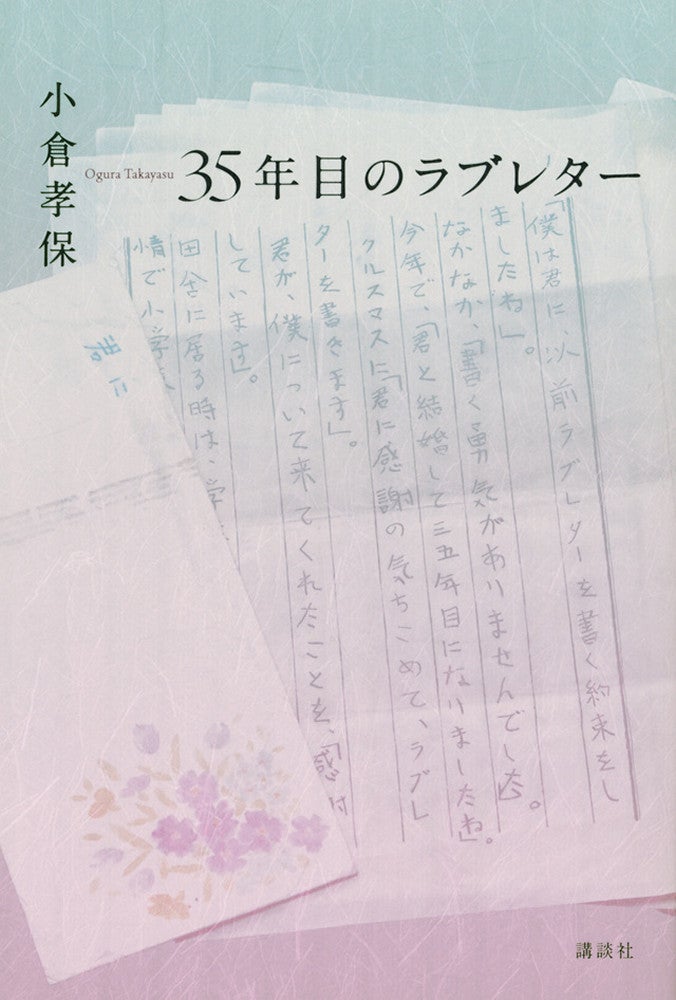 小倉孝保
Ogura Takayasu
35年目のラブレター
「僕は君に、以前ラブレターを書く約束をし
ましたね」。
なかなか、「書く勇気がありませんでした」。
今年で、「君と結婚して三五年目になりましたね」。
クルスマスに「君に感謝の気ちこめて、ラブレ
ターを書きます」。
君が、僕について来てくれたことを、「感け
しています」。
田舎に居る時は、学
情で小学
君に
講談社